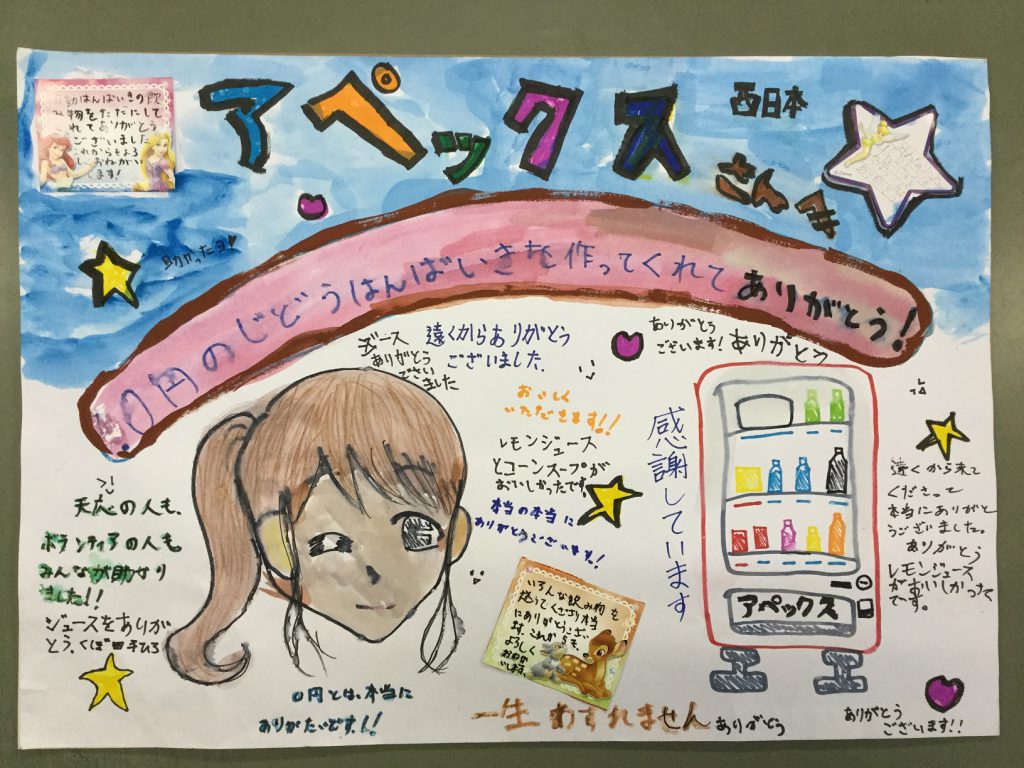 アペックス
西日本
さんへ
動はんばいきの飲
物をただにして
くれてありがとう
ございました
これからもよろ
しくおねがい
します!
助かったヨ
0円のじどうはんばいきを作ってくれてありがとう!
ジュース
ありがとう
ござい
ました
遠くからありがとう
ございました。
ありがとう
ございます!
ありがとう
おいしく
いただきます!!
レモンジュース
とコーンスープが
おいしかったです。
本当の本当に
ありがとうございます!
感謝しています
アペックス
遠くから来て
くださって
本当にありがと
うございました。
ありがとう
レモンジュース
がおいしかった
です。
天応の人も、
ボランティアの人も
みんなが助かり
ました!!
ジュースをありが
とう。
いろんな飲み物を
本当
にありがとうござい
ます。これからも、
よろしく
おねがい
します。
0円とは、本当に
ありがたいです!!
一生わすれません
ありがとう
ありがとう
ございます!!